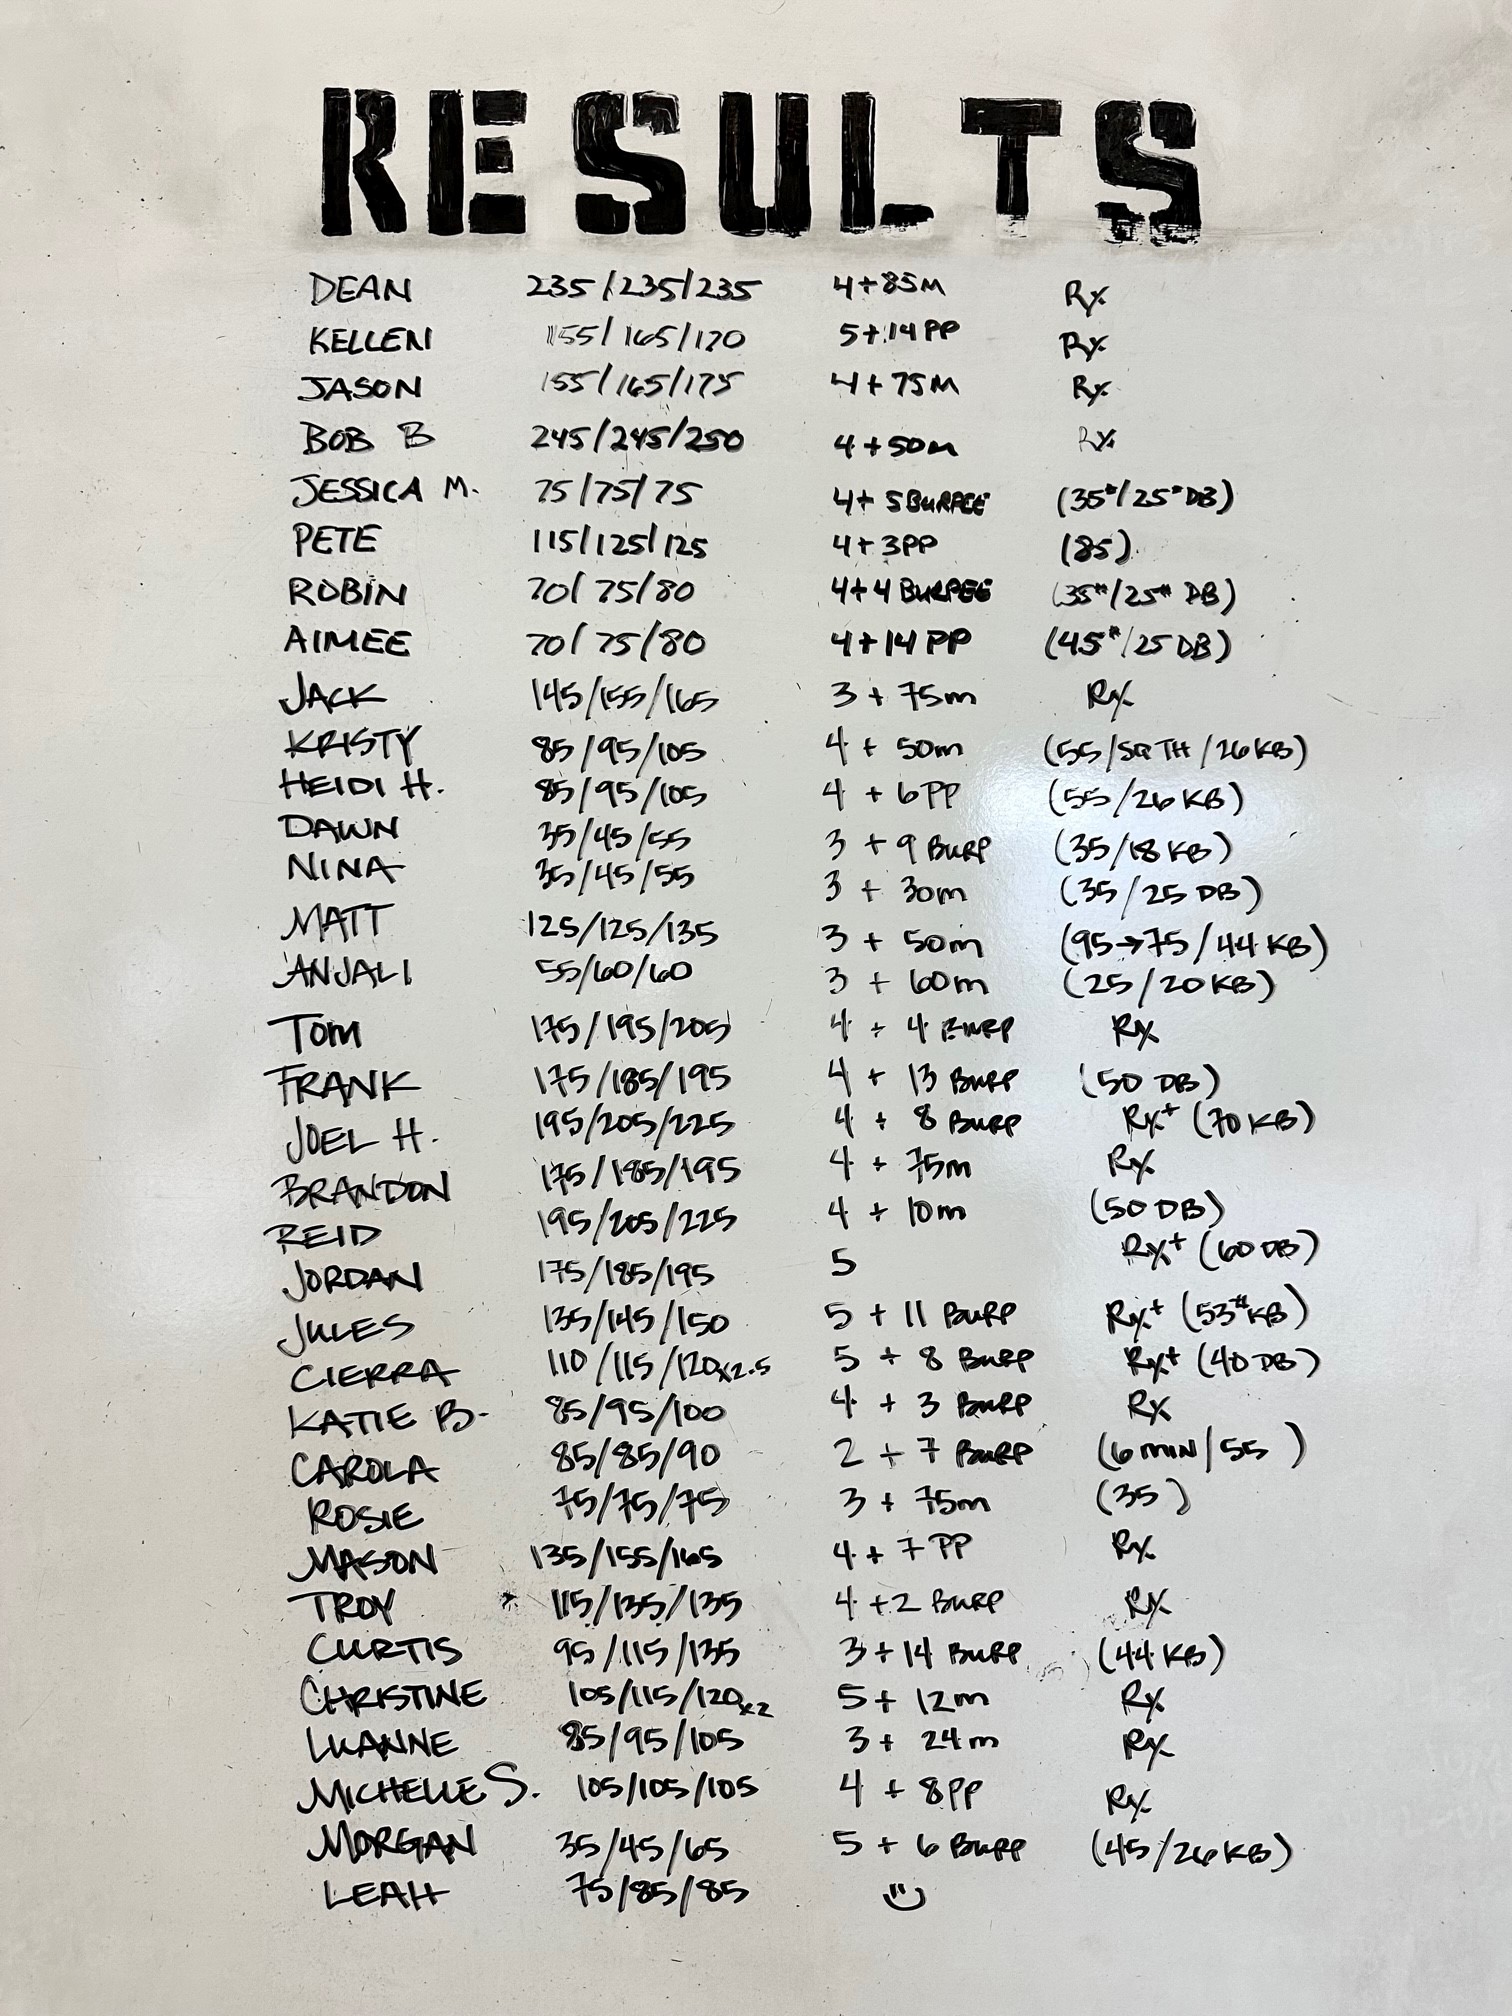 RESULTS
DEAN 235/235/235 4+85M Rx
KELLEN 155/165/170 5+14PP Rx
JASON 155/165/175 4+75M Rx
BOB B 245/245/250 4+50m Rx
JESSICA M. 75/75/75 4+5BURPEE (35#/25#DB)
PETE 115/125/125 4+3PP (85)
ROBIN 70/75/80 4+4BURPEE (35#/25# DB)
AIMEE 70/75/80 4+14PP (45#/25DB)
JACK 145/155/165 3+75m Rx
KRISTY 85/95/105 4+50m (55/SQ TH/26KB)
HEIDI H. 85/95/105 4+6PP (55/26KB)
DAWN 35/45/55 3+9 BURP (35/18KB)
NINA 35/45/55 3+30m (35/25DB)
MATT 125/125/135 3+50m (95→75/44KB)
ANJALI 55/60/60 3+60m (25/20KB)
TOM 175/195/205 4+4 BURP Rx
FRANK 175/185/195 4+13 BURP (50 DB)
JOEL H. 195/205/225 4+8 BURP Rx+ (70KB)
BRANDON 175/185/195 4+75m Rx
REID 195/205/225 4+10m (50DB)
JORDAN 175/185/195 5 Rx+ (60DB)
JULES 135/145/150 5+11 BURP Rx+ (53#KB)
CIERRA 110/115/120x2.5 5+8 BURP Rx+ (40DB)
KATIE B- 85/95/100 4+3 BURP Rx
CAROLA 85/85/90 2+7 BURP (6 MIN/55)
ROSIE 75/75/75 3+75m (35)
MASON 135/155/165 4+7 PP Rx
TROY * 115/135/135 4+2 BURP Rx
CURTIS 95/115/135 3+14 BURP (44KB)
CHRISTINE 105/115/120x2 5+12m Rx
LUANNE 85/95/105 3+24m Rx
MICHELLE S. 105/105/105 4+8PP Rx
MORGAN 35/45/65 5+6 BURP (45/26KB)
LEAH 75/85/85